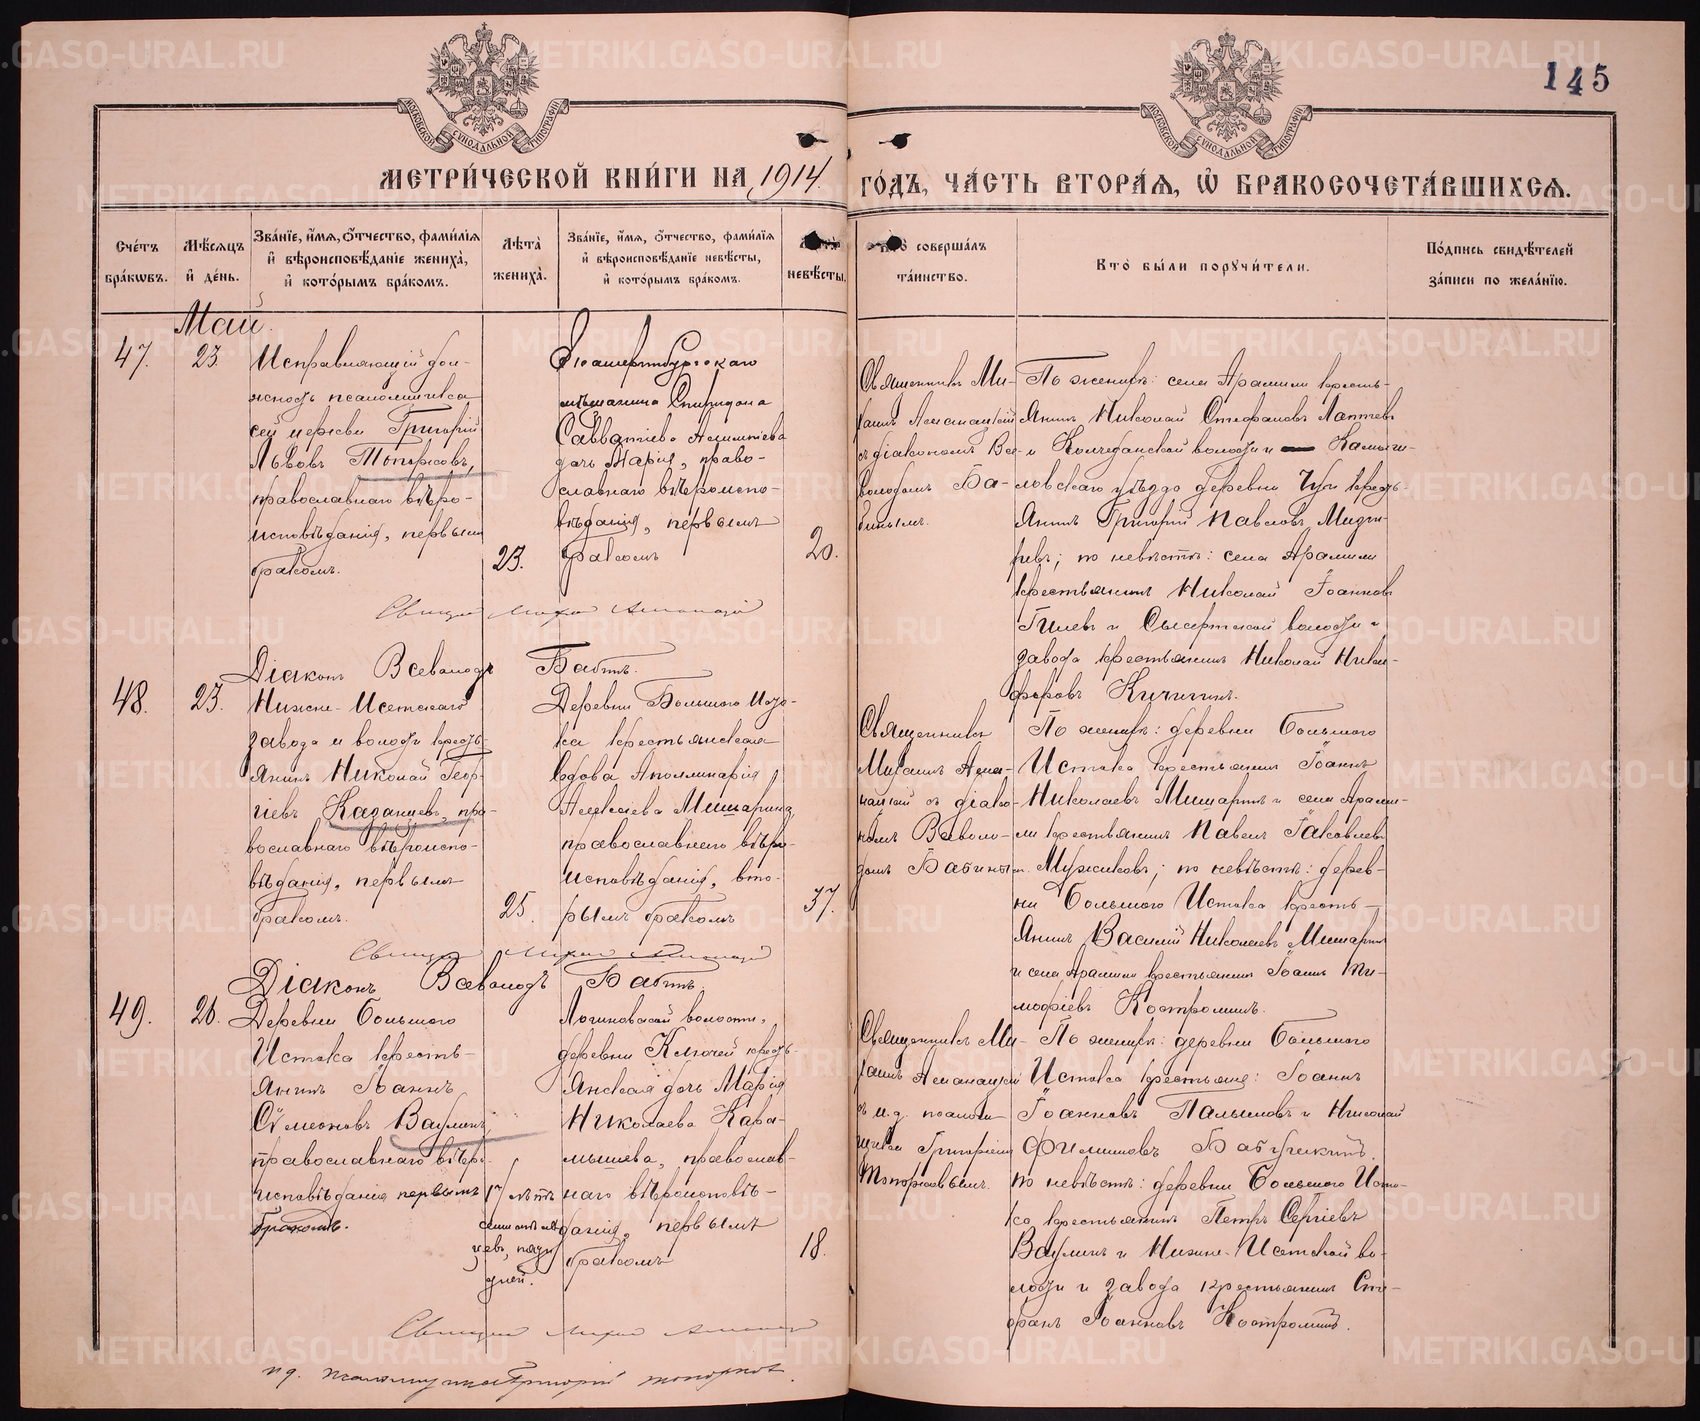 145
МЕТРИ́ЧЕСКОЙ КНИ́ГИ НА 1914 ГО́ДЪ, ЧА́СТЬ ВТОРА́Ѧ, Ѽ БРАКОСОЧЕТА́ВШИХСѦ.
Сче́тъ бра́кѡвъ.
Мѣ́сѧцъ и҆ де́нь.
Зва́нїе, и҆́мѧ, ѻ҆́тчество, фами́лїѧ и҆ вѣроисповѣ́данїе жениха̀, и҆ кото́рымъ бра́комъ.
Лѣ́та̀ жениха̀.
Зва́нїе, и҆́мѧ, ѻ҆́тчество, фами́лїѧ и҆ вѣроисповѣ́данїе невѣ́сты, и҆ кото́рымъ бра́комъ.
невѣ́сты.
соверша́лъ та́инство.
Кто̀ бы́ли порꙋчи́тели.
По́дпись свидѣ́телей за́писи по жела́нїю.
Май
47.
23.
Исправляющій дол-
жность псаломщика
сей церкви Григорій
Львовъ Топорковъ,
православнаго вѣро-
исповѣданія, первымъ
бракомъ.
23.
Екатеринбургскаго
мѣщанина Спиридона
Савватіева
дочь Марія, право-
славнаго вѣроиспо-
вѣданія, первымъ
бракомъ
20.
Священникъ Ми-
хаилъ
съ діакономъ Все-
володомъ Ба-
бинымъ.
По женихѣ: села Арамили кресть-
янинъ Николай Стефановъ Лаптевъ
и Колчеданской волости Камыш-
ловскаго уѣзда деревни кресть-
янинъ Григорій Павловъ
по невѣстѣ: села Арамили
крестьянинъ Николай Іоанновъ
Гилевъ и Сысертской волости и
завода крестьянинъ Николай Ники-
форовъ Кичигинъ.
Діаконъ Всеволодъ Бабинъ.
48.
23.
Нижне-Исетскаго
завода и волости кресть-
янинъ Николай Геор-
гіевъ Казанцевъ, пра-
вославнаго вѣроиспо-
вѣданія, первымъ
бракомъ.
25.
Деревни Большого Исто-
ка крестьянская
вдова Аполлинарія
Алексѣева Мишарина,
православнаго вѣро-
исповѣданія, вто-
рымъ бракомъ
37.
Священникъ
Михаилъ
съ діако-
номъ Всеволо-
домъ Бабинымъ.
По женихѣ: деревни Большого
Истока крестьянинъ Іоаннъ
Николаевъ Мишаринъ и села Арами-
ли крестьянинъ Павелъ Іаковлевъ
Мужиковъ; по невѣстѣ: дерев-
ни Большого Истока кресть-
янинъ Василій Николаевъ Мишаринъ
и села Арамили крестьянинъ Іоаннъ Ти-
мофіевъ Костроминъ.
Діаконъ Всеволодъ Бабинъ.
49.
26.
Деревни Большого
Истока кресть-
янинъ Іоаннъ
Сѵмеоновъ Ваулинъ,
православнаго вѣро-
исповѣданія первымъ
бракомъ.
17 лѣтъ
семь мѣся-
цевъ,
дней.
Логиновской волости,
деревни Ключей кресть-
янская дочь Марія
Николаева Кара-
мышева, православ-
наго вѣроисповѣ-
данія, первымъ
бракомъ
18.
Священникъ Ми-
хаилъ
съ и.д. псалом-
щика Григоріемъ
Топорковымъ.
По женихѣ: деревни Большого
Истока крестьяне: Іоаннъ
Іоанновъ Палымовъ и Николай
Филипповъ Бабушкинъ,
по невѣстѣ: деревни Большого Исто-
ка крестьянинъ Петръ Сергіевъ
Ваулинъ и Нижне-Исетской во-
лости и завода крестьянинъ Сте-
фанъ Іоанновъ Костроминъ.
METRIKI.GASO-URAL.RU